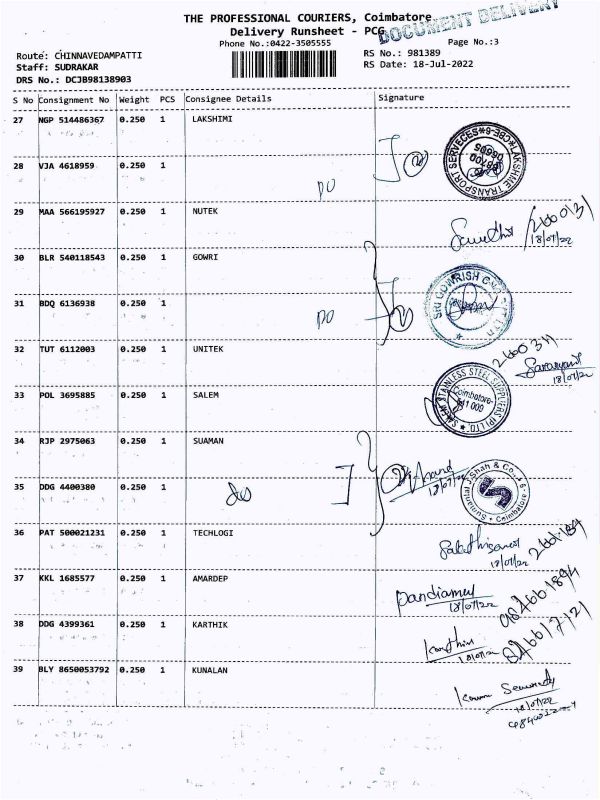 THE PROFESSIONAL COURIERS, Coimbatore.
DOCUMENT DELIVERY
Delivery Runsheet - PCG
Phone No.:0422-3505555
Page No.:3
Route: CHINNAVEDAMPATTI
RS No.: 981389
Staff: SUDRAKAR
RS Date: 18-Jul-2022
DRS No.: DCJB98138903
S No Consignment No Weight PCS Consignee Details Signature
27 NGP 514486367 0.250 1 LAKSHIMI
LAKSHME TRANSPORT SERVECES * CBE-6 *
28 VJA 4618959 0.250 1
DO
29 MAA 566195927 0.250 1 NUTEK
18/07/22
30 BLR 540118543 0.250 1 GOWRI
31 BDQ 6136938 0.250 1
DO
32 TUT 6112003 0.250 1 UNITEK
18/07/22
33 POL 3695885 0.250 1 SALEM
SALEM STAINLESS STEEL SUPPLIERS (P) LTD.
Coimbatore-
34 RJP 2975063 0.250 1 SUAMAN
Anand
18/07/22
35 DDG 4400380 0.250 1
do
Sumermal J. Shah & Co. Coimbatore - 9
36 PAT 500021231 0.250 1 TECHLOGI
18/07/22
37 KKL 1685577 0.250 1 AMARDEP
18/07/22
38 DDG 4399361 0.250 1 KARTHIK
18/07/22
39 BLY 8650053792 0.250 1 KUNALAN
18/07/22